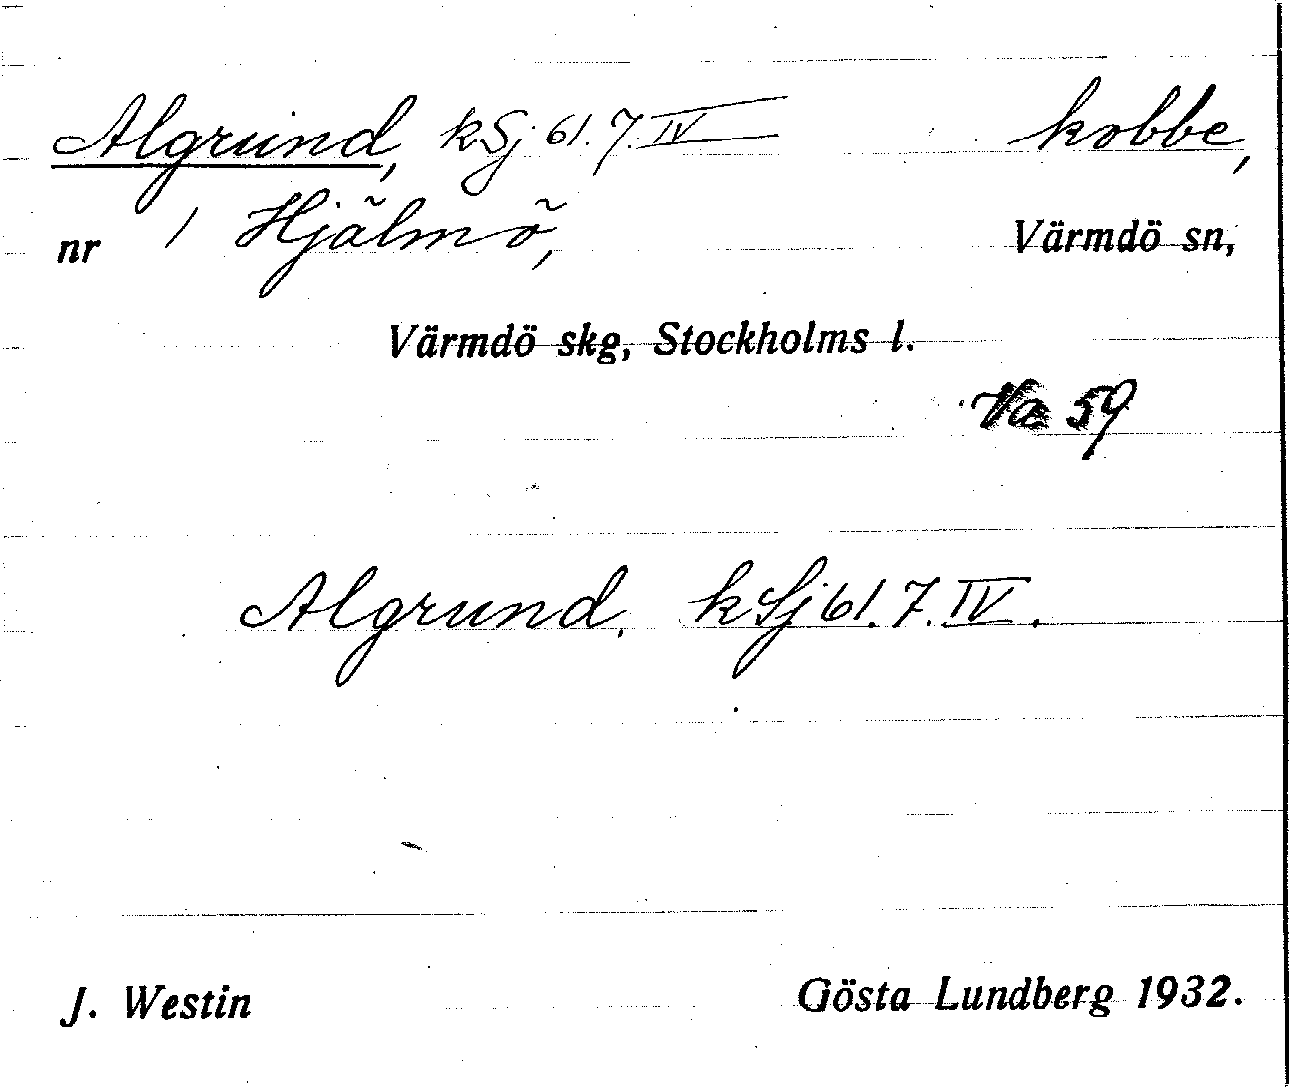 Algrund, kSj 61.7.IV kobbe,
nr 1 Hjälmö, Värmdö sn,
Värmdö skg, Stockholms l.
Va 59
Algrund. kSj 61.7.IV.
J. Westin Gösta Lundberg 1932.